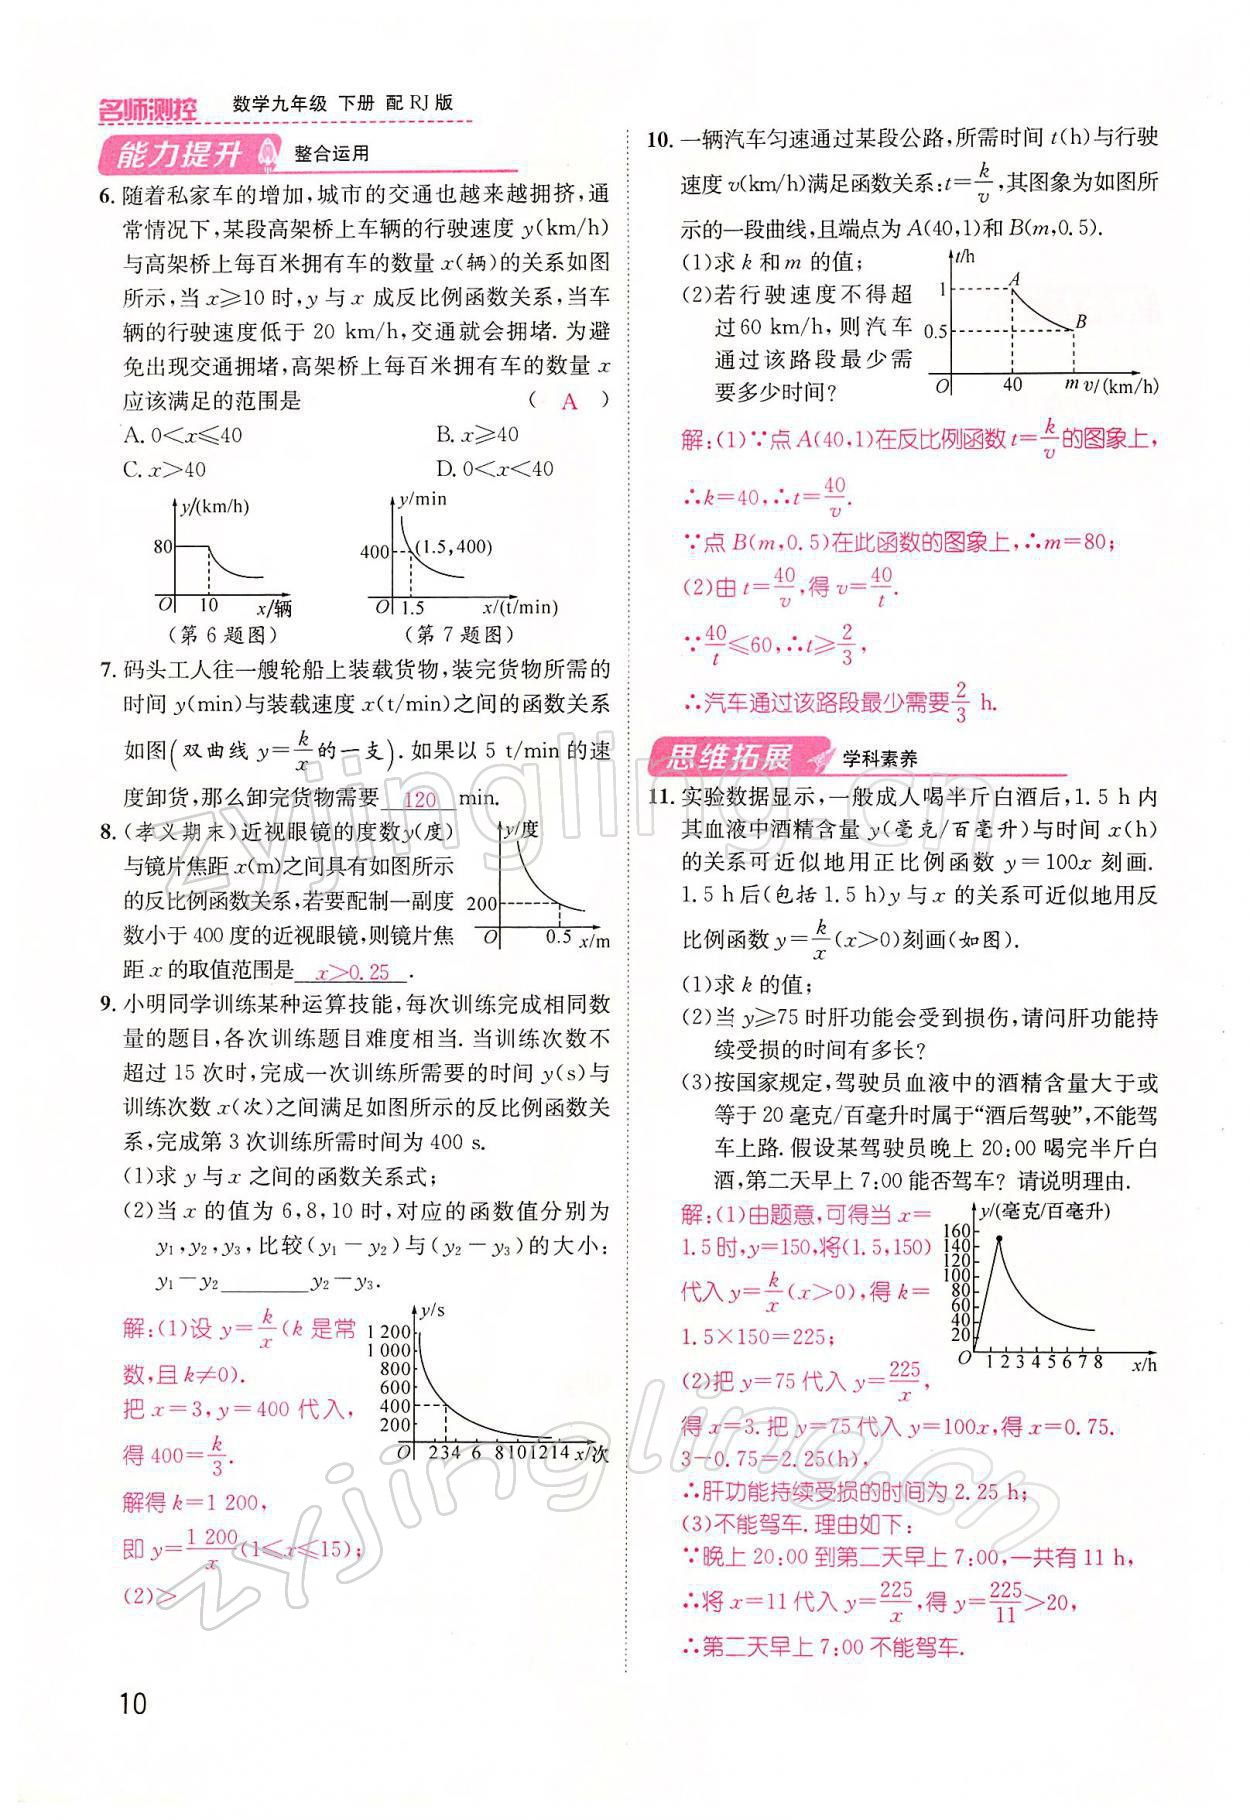 名师测控 数学九年级 下册 配 RJ 版
能力提升 整合运用
6. 随着私家车的增加,城市的交通也越来越拥挤,通
常情况下,某段高架桥上车辆的行驶速度 y(km/h)
与高架桥上每百米拥有车的数量 x(辆)的关系如图
所示,当 x≥10 时,y 与 x 成反比例函数关系,当车
辆的行驶速度低于 20 km/h,交通就会拥堵. 为避
免出现交通拥堵,高架桥上每百米拥有车的数量 x
应该满足的范围是 ( A )
A. 0<x≤40 B. x≥40
C. x>40 D. 0<x<40
y/(km/h)
80
O 10 x/辆
(第 6 题图)
y/min
400
(1.5,400)
O 1.5 x/(t/min)
(第 7 题图)
7. 码头工人往一艘轮船上装载货物,装完货物所需的
时间 y(min)与装载速度 x(t/min)之间的函数关系
如图(双曲线 y=k/x的一支). 如果以 5 t/min 的速
度卸货,那么卸完货物需要 120 min.
8. (孝义期末)近视眼镜的度数y(度)
与镜片焦距 x(m)之间具有如图所示
的反比例函数关系,若要配制一副度
数小于 400 度的近视眼镜,则镜片焦
距 x 的取值范围是 x>0.25 .
y/度
200
O 0.5 x/m
9. 小明同学训练某种运算技能,每次训练完成相同数
量的题目,各次训练题目难度相当. 当训练次数不
超过 15 次时,完成一次训练所需要的时间 y(s)与
训练次数 x(次)之间满足如图所示的反比例函数关
系,完成第 3 次训练所需时间为 400 s.
(1)求 y 与 x 之间的函数关系式;
(2)当 x 的值为 6,8,10 时,对应的函数值分别为
y₁,y₂,y₃,比较(y₁-y₂)与(y₂-y₃)的大小:
y₁-y₂________y₂-y₃.
解:(1)设 y=k/x(k 是常
数,且 k≠0).
把 x=3,y=400 代入,
得 400=k/3.
解得 k=1 200,
即 y=1 200/x(1≤x≤15);
(2)>
y/s
1 200
1 000
800
600
400
200
O 2 3 4 6 8 10 12 14 x/次
10
10. 一辆汽车匀速通过某段公路,所需时间 t(h)与行驶
速度 v(km/h)满足函数关系:t=k/v,其图象为如图所
示的一段曲线,且端点为 A(40,1)和 B(m,0.5).
(1)求 k 和 m 的值;
(2)若行驶速度不得超
过60 km/h,则汽车
通过该路段最少需
要多少时间?
t/h
1
A
0.5
B
O 40 m v/(km/h)
解:(1)∵点 A(40,1)在反比例函数 t=k/v的图象上,
∴k=40,∴t=40/v.
∵点 B(m,0.5)在此函数的图象上,∴m=80;
(2)由 t=40/v,得 v=40/t.
∵40/t≤60,∴t≥2/3,
∴汽车通过该路段最少需要2/3 h.
思维拓展 学科素养
11. 实验数据显示,一般成人喝半斤白酒后,1.5 h 内
其血液中酒精含量 y(毫克/百毫升)与时间 x(h)
的关系可近似地用正比例函数 y=100x 刻画.
1.5 h后(包括 1.5 h)y 与 x 的关系可近似地用反
比例函数 y=k/x(x>0)刻画(如图).
(1)求 k 的值;
(2)当 y≥75 时肝功能会受到损伤,请问肝功能持
续受损的时间有多长?
(3)按国家规定,驾驶员血液中的酒精含量大于或
等于 20 毫克/百毫升时属于“酒后驾驶”,不能驾
车上路. 假设某驾驶员晚上 20:00 喝完半斤白
酒,第二天早上 7:00 能否驾车? 请说明理由.
解:(1)由题意,可得当 x=
1.5 时,y=150,将(1.5,150)
代入 y=k/x(x>0),得 k=
1.5×150=225;
y/(毫克/百毫升)
160
140
120
100
80
60
40
20
O 1 2 3 4 5 6 7 8 x/h
(2)把 y=75 代入 y=225/x,
得 x=3. 把 y=75 代入 y=100x,得 x=0.75.
3-0.75=2.25(h),
∴肝功能持续受损的时间为 2.25 h;
(3)不能驾车. 理由如下:
∵晚上 20:00 到第二天早上 7:00,一共有 11 h,
∴将 x=11 代入 y=225/x,得 y=225/11>20,
∴第二天早上 7:00 不能驾车.
zyjingling.cn
zyjingling.cn